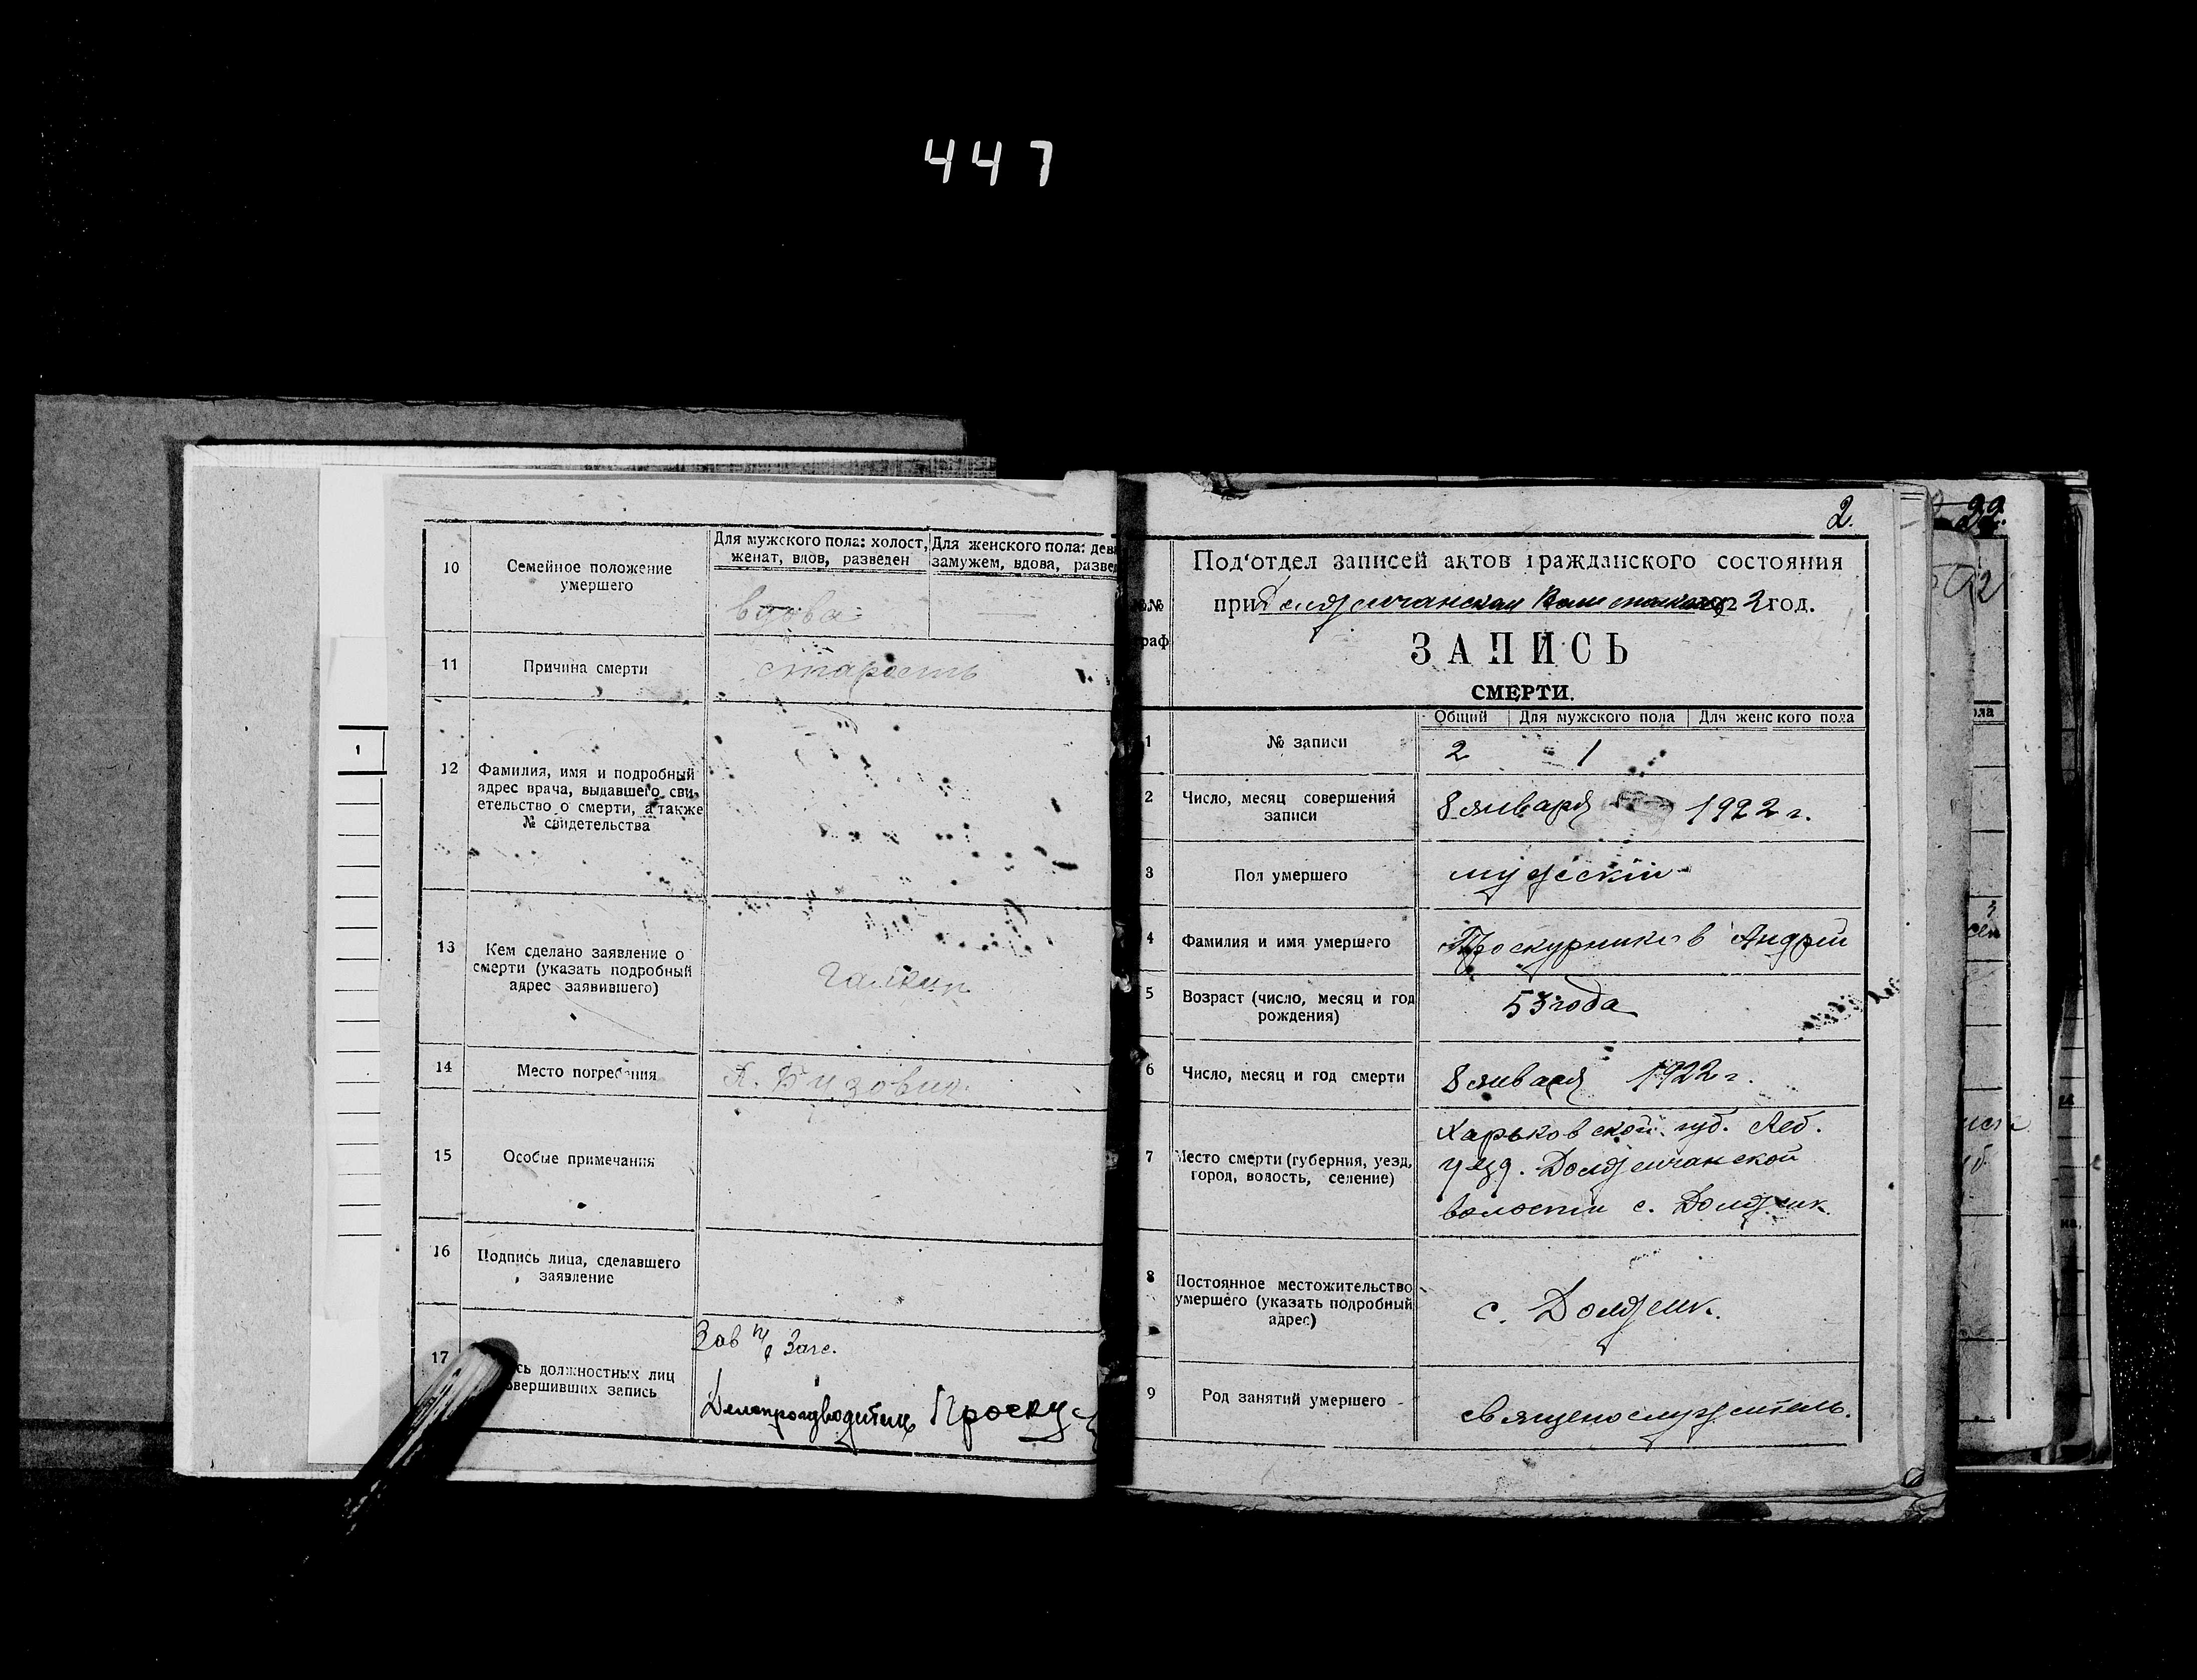 447
10
Семейное положение
умершего
Для мужского пола: холост,
женат, вдов, разведен
Для женского пола: дев
замужем, вдова, развед
вдова
11
Причина смерти
старость
12
Фамилия, имя и подробный
адрес врача, выдавшего сви-
етельство о смерти, а также
№ свидетельства
13
Кем сделано заявление о
смерти (указать подробный
адрес заявившего)
14
Место погребения
15
Особые примечания
16
Подпись лица, сделавшего
заявление
17
сь должностных лиц
овершивших запись
Зав п/о Загс.
Делопроизводитель Проску
1
2.
Под‘отдел записей актов гражданского состояния
при 1922 год.
№№
раф
ЗАПИСЬ
СМЕРТИ.
Общий Для мужского пола Для женского пола
1
№ записи
2 1
2
Число, месяц совершения
записи
8 января 1922 г.
3
Пол умершего
мужский
4
Фамилия и имя умершего
Проскурников Андрей
5
Возраст (число, месяц и год
рождения)
53 года
6
Число, месяц и год смерти
8 января 1922 г.
7
Место смерти (губерния, уезд,
город, волость, селение)
Харьковской губ. Леб.
уезд. Должичанской
волости с. Должик
8
Постоянное местожительство
умершего (указать подробный
адрес)
с. Должик.
9
Род занятий умершего
священослужитель.